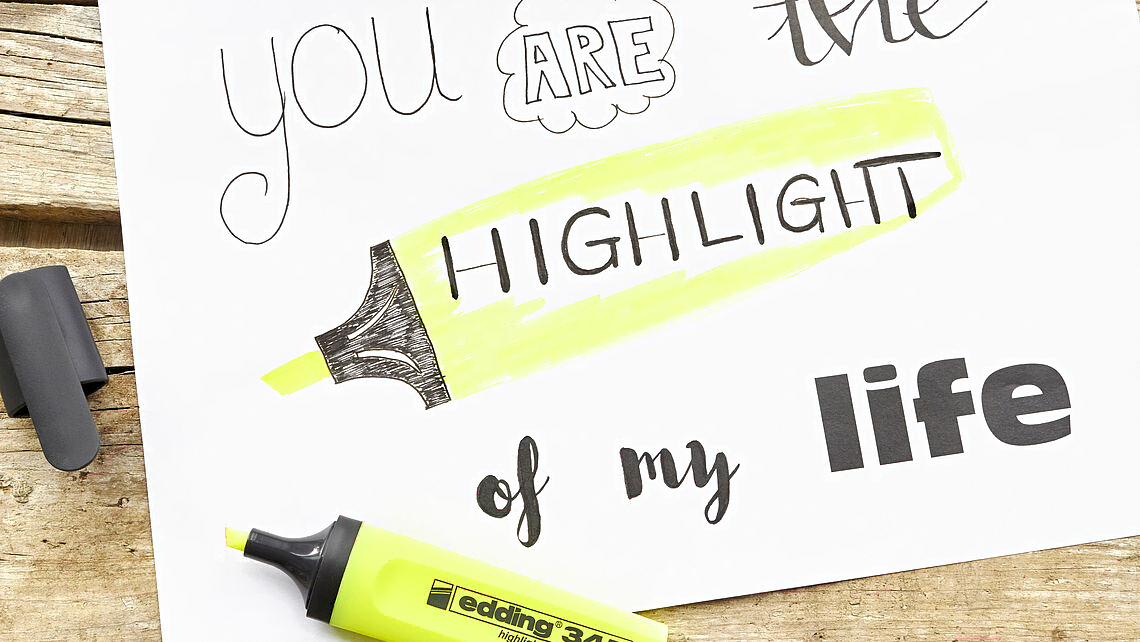 you ARE the
HIGHLIGHT
of my life
edding®